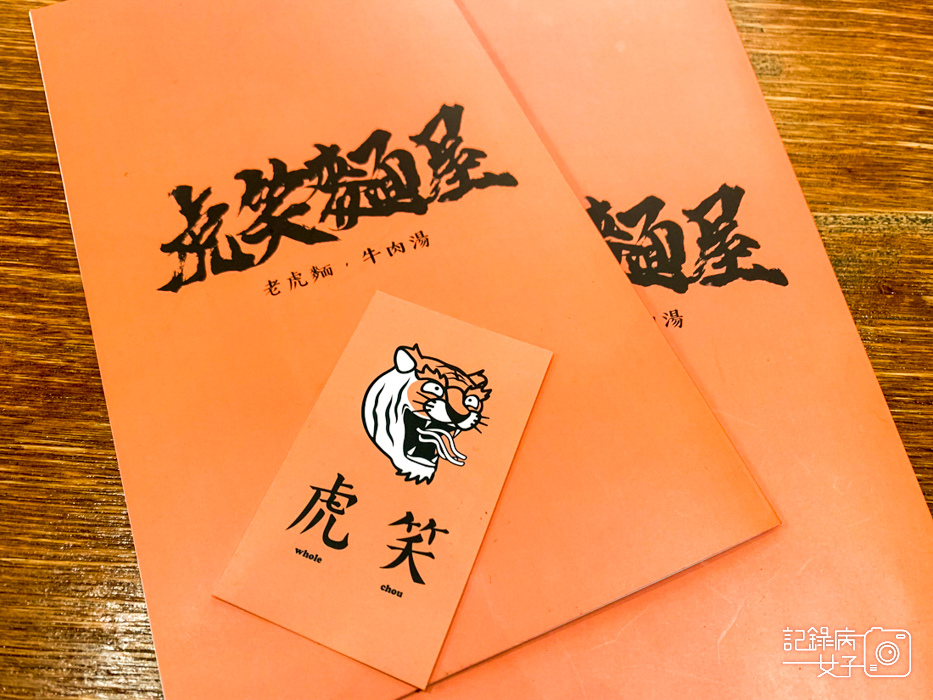 虎笑麵屋
老虎麵，牛肉湯
麵屋
湯
虎笑
whole chou
記錄病
女子